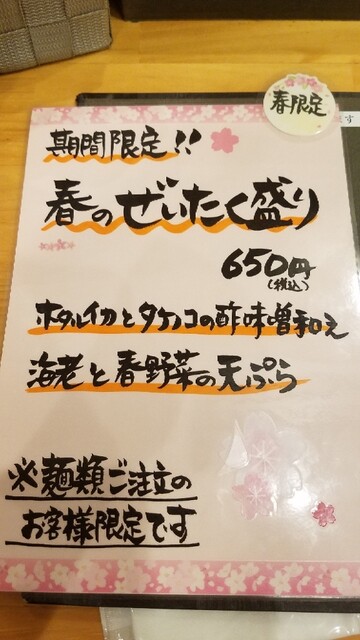 春限定
期間限定!!
春のぜいたく盛り
650円
(税込)
ホタルイカとタケノコの酢味噌和え
海老と春野菜の天ぷら
※麺類ご注文の
お客様限定です